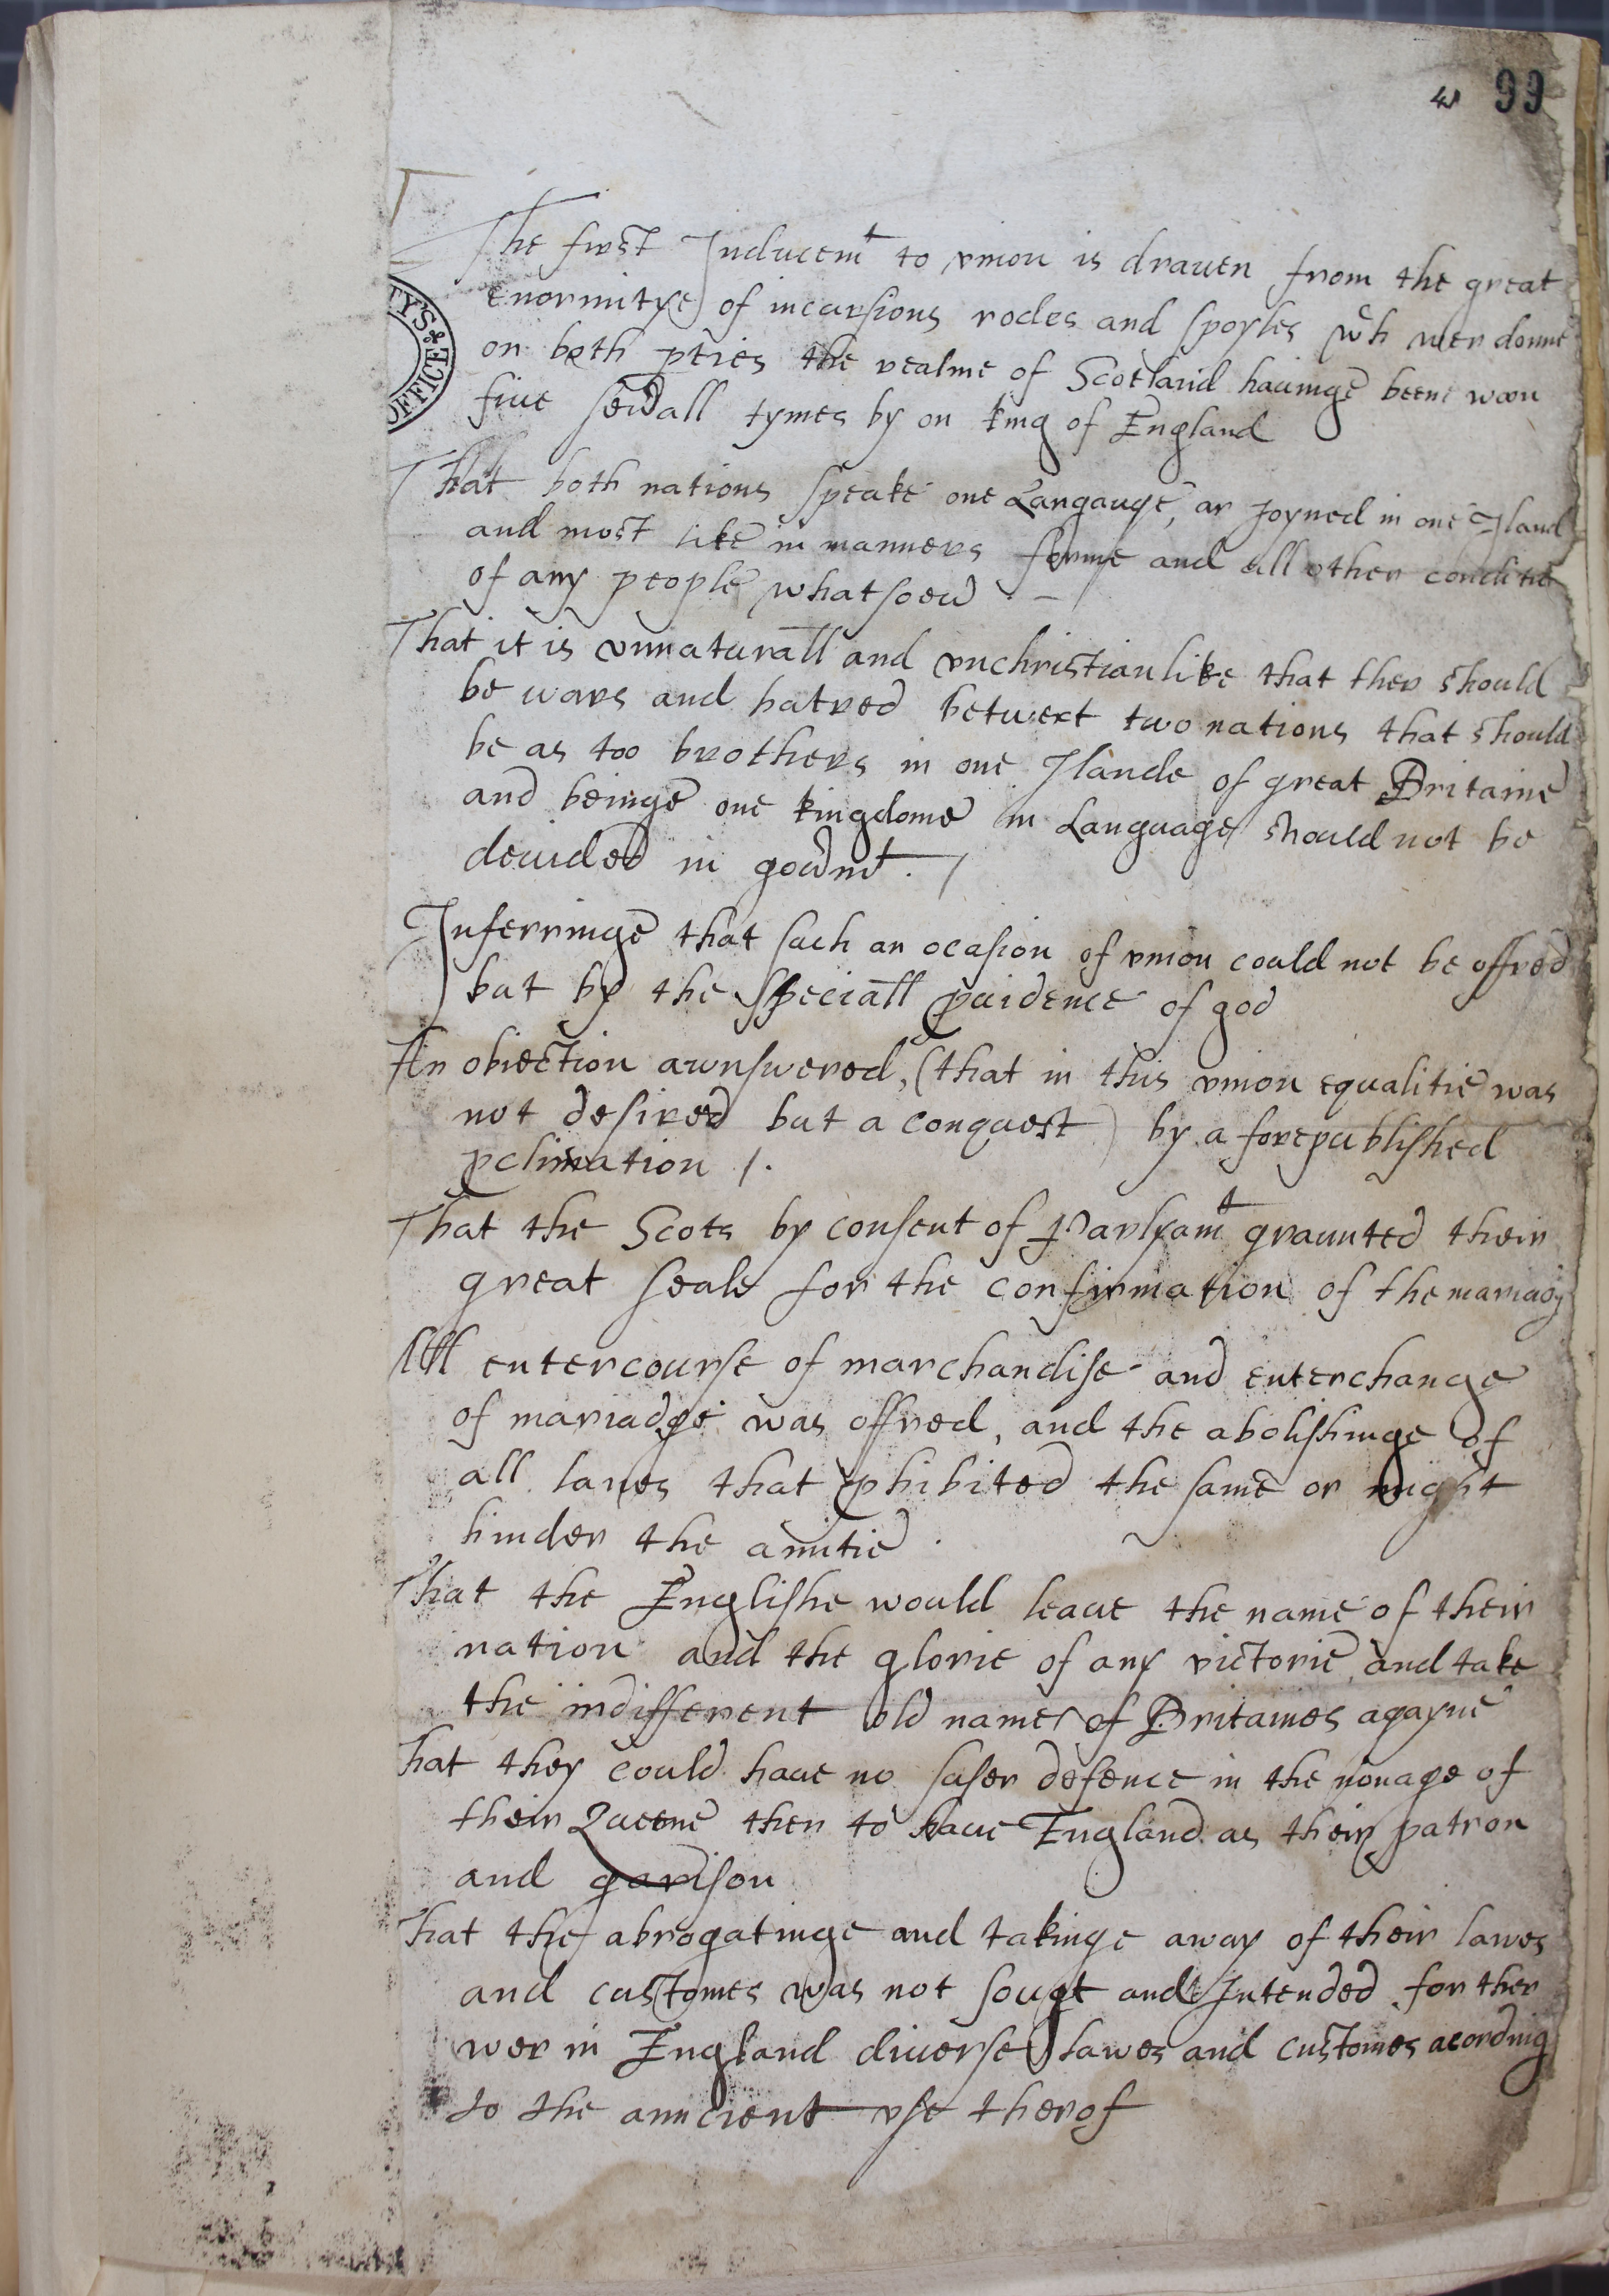 4 99
The first Inducemt to vnion is drauen from the great
enormitye of incursions rodes and spoyles wh wer donne
on both pties the realme of Scotland hauinge beene woon
fiue seuall tymes by on king of England
TY'S
OFFICE
That both nations speake one Langauge, ar Joyned in one Iland
and most like in manners forme and all other conditiō
of any people whatsoeu
That it is vnnaturall and vnchristianlike that ther should
be wars and hatred betwext two nations that should
be as too brothers in one Ilande of great Britaine
and beinge one kingdome in Language should not be
deuided in gouᵈmt. /
Inferringe that such an ocasion of vnion could not be offred
but by the speciall puidence of god
An obiection awnswered, (that in this vnion equalitie was
not desired but a conquest) by a forepublished
pclimation /.
That the Scots by consent of Parlyamt graunted their
great seale for the confirmation of the mariag
All entercourse of marchandise and enterchange
of mariadge was offred, and the abolishinge of
all lawes that phibited the same or might
hinder the amitie .
That the Englishe would leaue the name of their
nation and the glorie of any victorie and take
the indifferent old name of Britaines agayne
That they could haue no safer defence in the nonage of
their Queene then to haue England as their patron
and garison
That the abrogatinge and takinge away of their lawes
and customes was not sougt and Intended for ther
wer in England diuerse lawes and customes acording
to the anncient vse therof